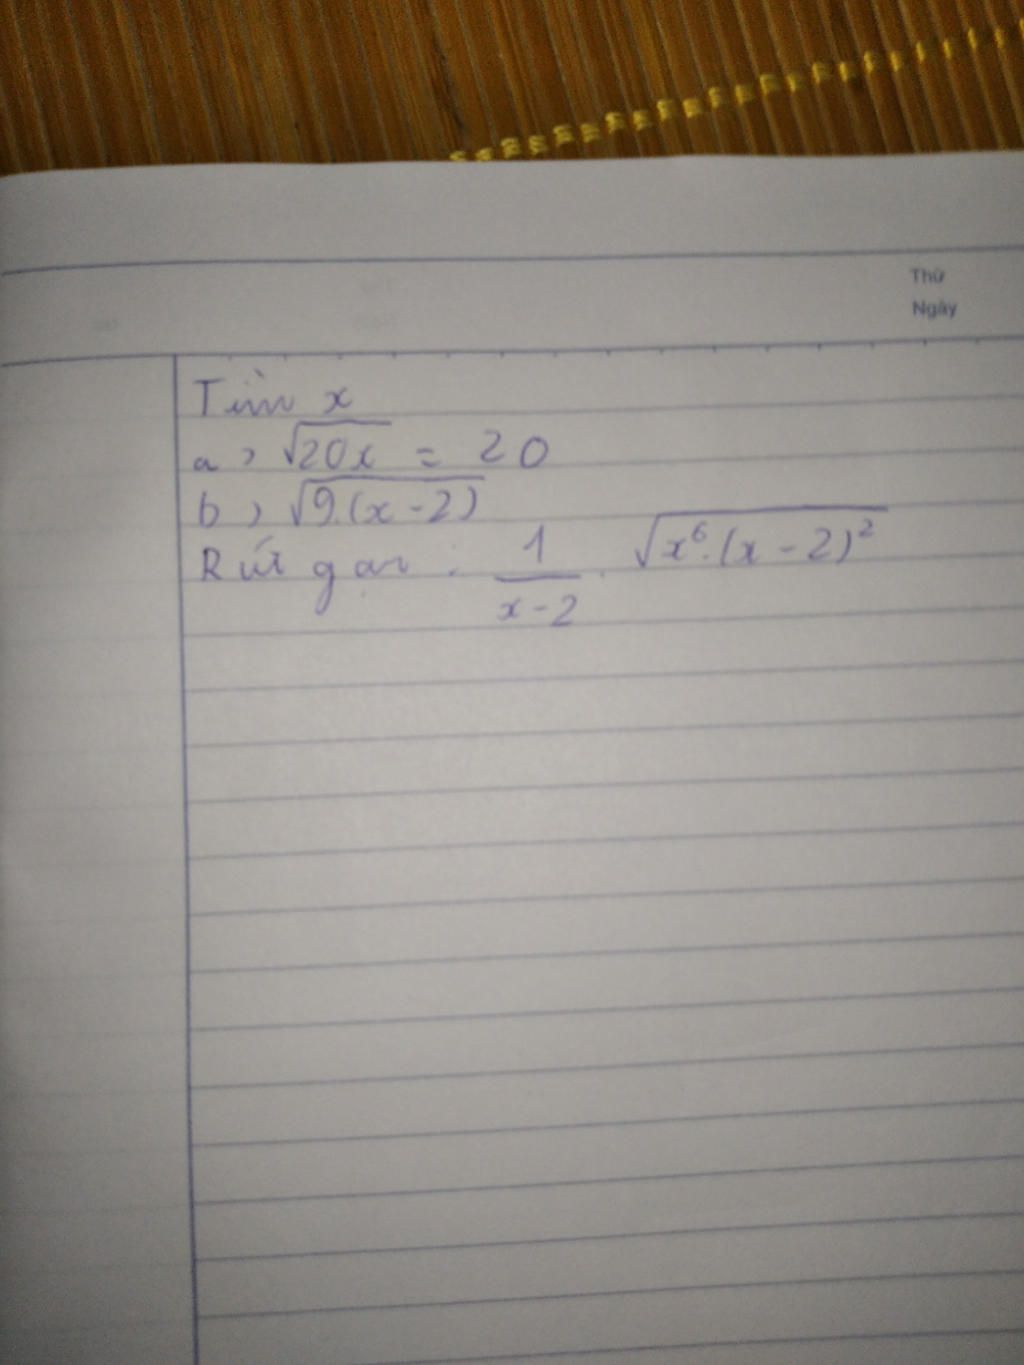 Thứ
Ngày
Tìm x
a) √20x = 20
b) √9.(x-2)
Rút gọn : 1/(x-2) . √x⁶.(x-2)²